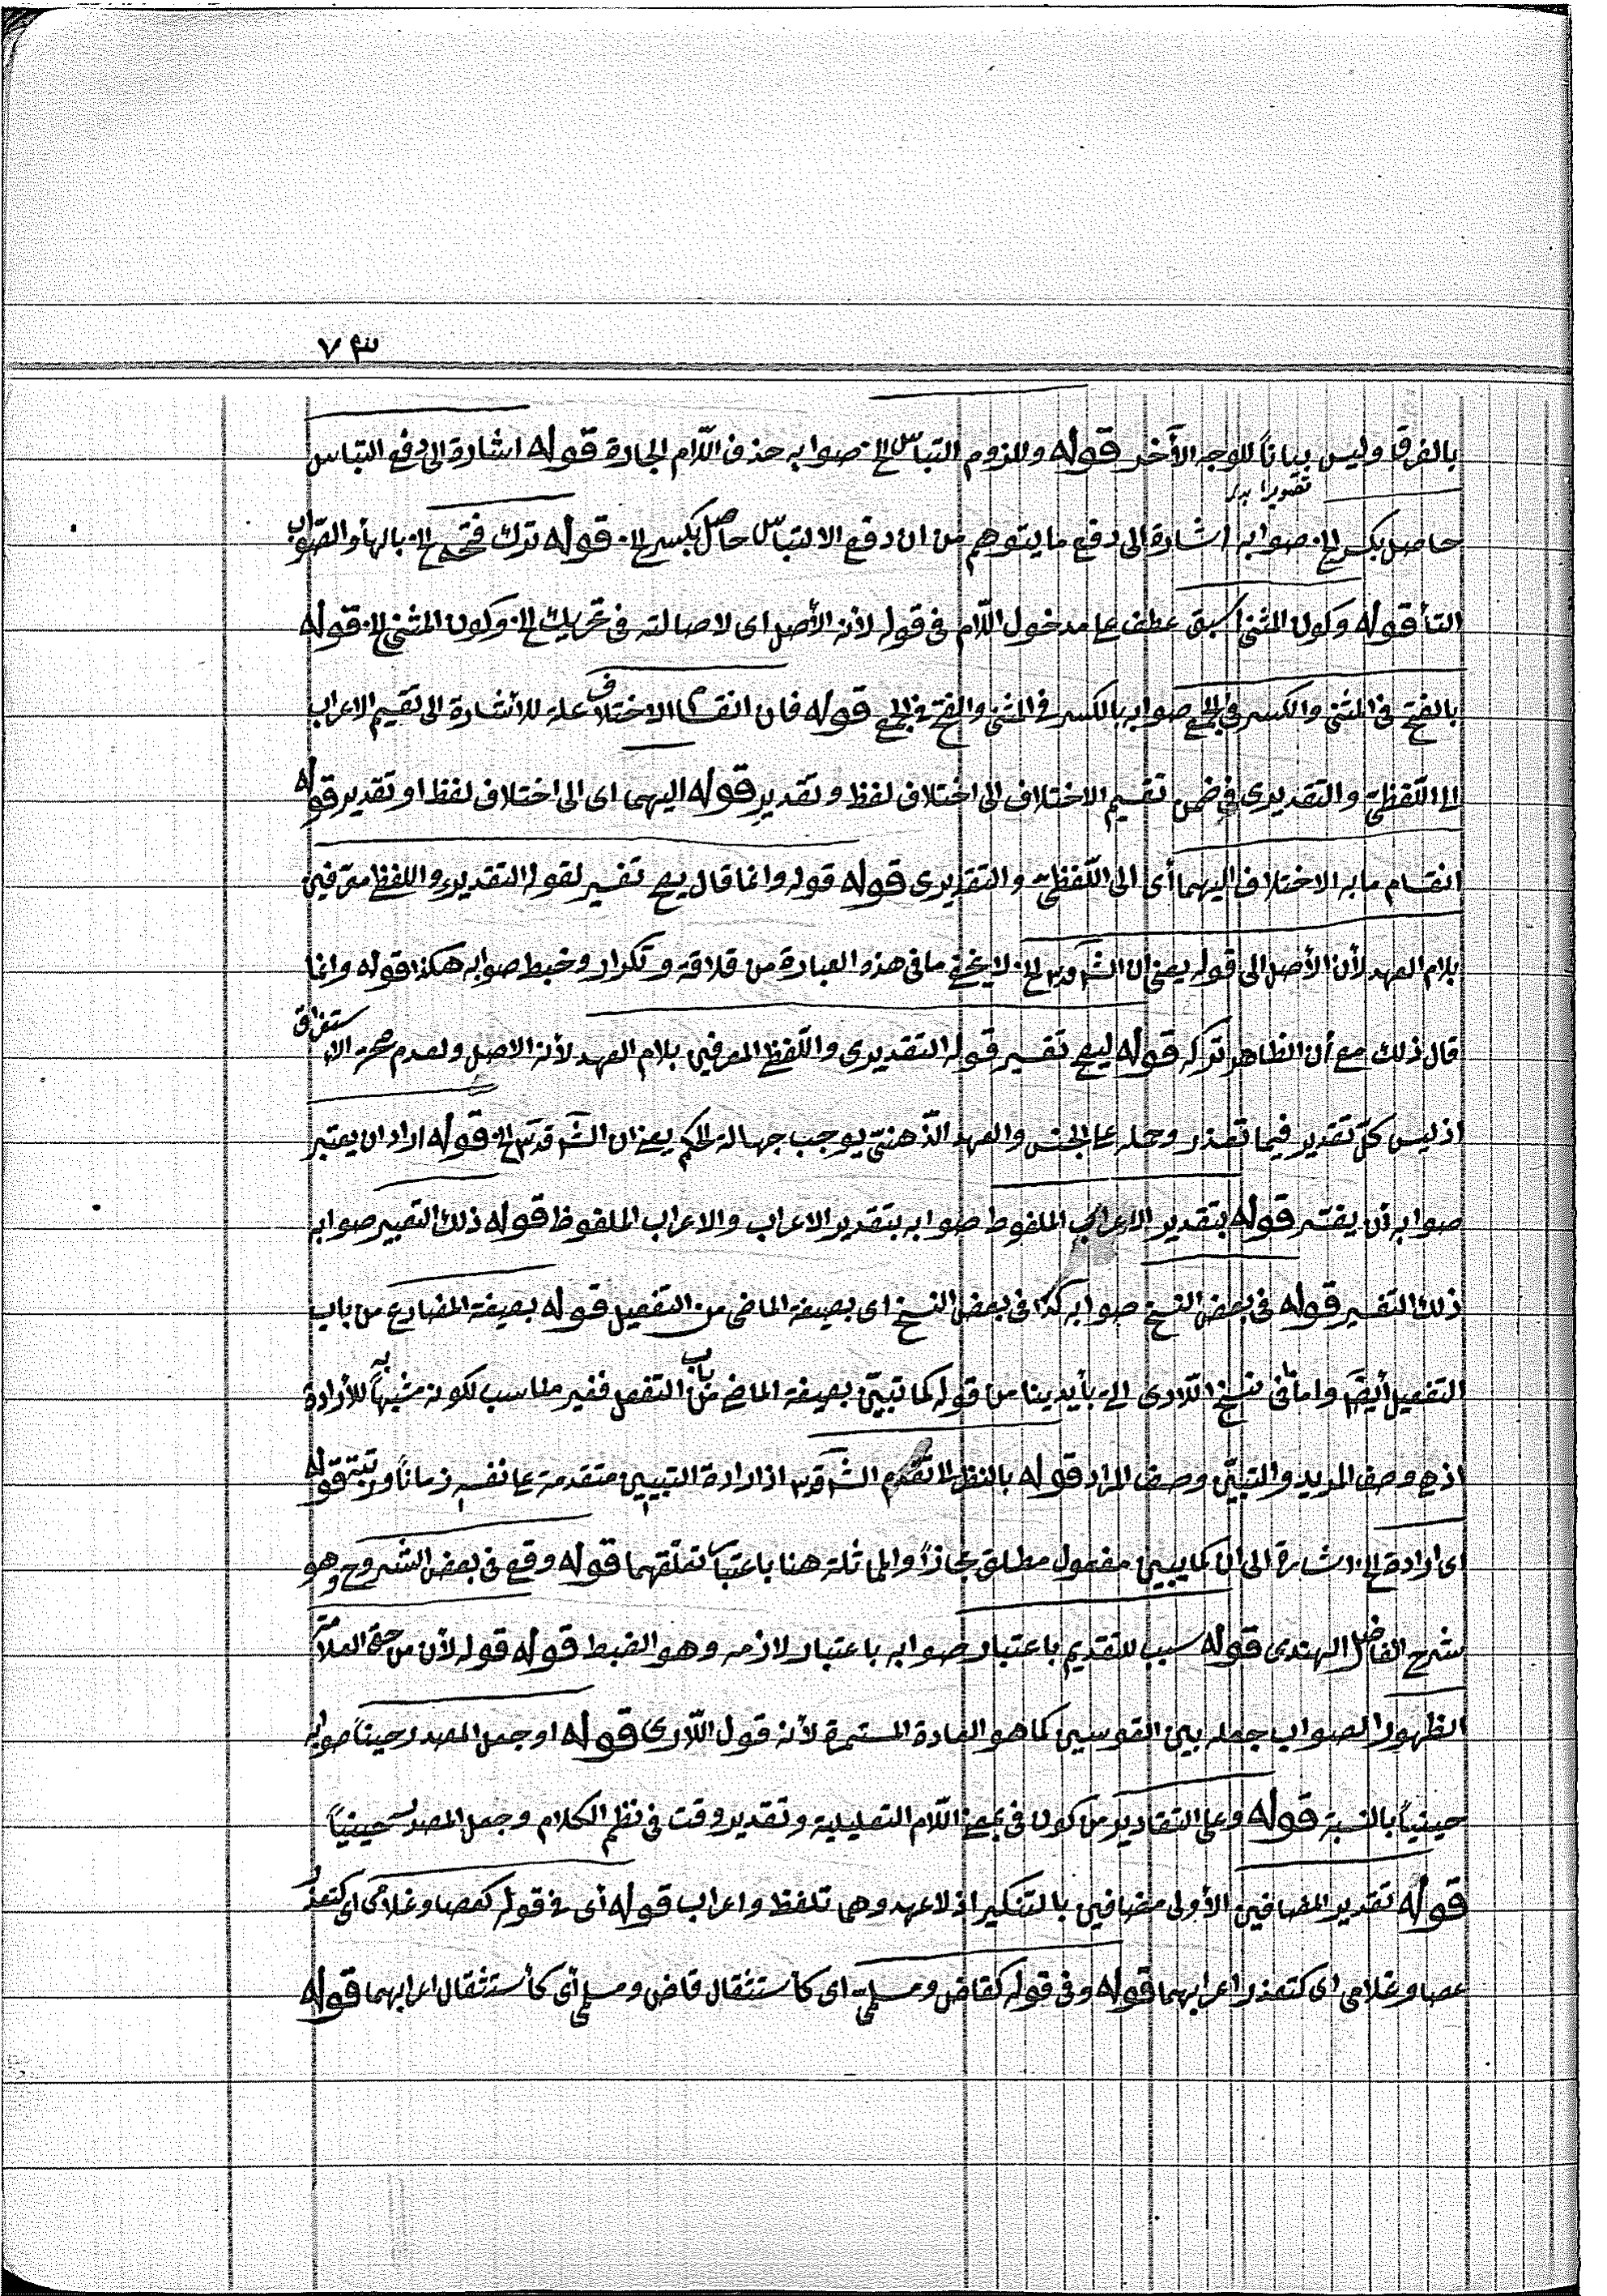 ٧٣
بالفرق وليس بيانًا للوجه الأخر قوله وللزوم التباس الخ صوابه حذف اللّام الجارة قوله اشارة الى دفع التباس
حاصل بكسر الخ صوابه اشارة الى دفع ما يتوهم من ان دفع الالتباس حاصل بكسر الخ قوله ترك فتحه الخ بالهاء والصّواب
التاء قوله وكون المثنى اسبق عطف على مدخول اللّام في قوله لأنه الأصل اى لاصالته في تحريك الخ وكون المثنى الخ قوله
بالفتح في المثنى والكسر في الجمع صوابه بالكسر في المثنى والفتح في الجمع قوله فان انقسام الاختلاف علة للاشارة الى تقسيم الاعراب
الى اللّفظىّ والتقديرى في ضمن تقسيم الاختلاف الى اختلاف لفظ وتقدير قوله اليهما اى الى اختلاف لفظ او تقدير قوله
انقسام ما به الاختلاف اليهما أى الى اللّفظىّ والتقديرى قوله قوله وانما قال يعنى تفسير لقوله التقديرى واللفظ معرّفين
بلام العهد لأن الأصل الى قوله يعنى ان الش قدس الخ لا يخفى ما في هذه العبارة من قلاقة وتكرار وخبط صوابه هكذا قوله وانما
قال ذلك مع أن الظاهر تركه قوله ليصح تفسير قوله التقديرى واللّفظ المعرفين بلام العهد لأنه الاصل ولعدم صحة الاستغراق
اذ ليس كلّ تقدير فيما تعذر وحمله على الجنس والعهد الذّهنىّ يوجب جهالة الحكم يعنى ان الش قدس الخ قوله اراد ان يعتبر
صوابه أن يفسّر قوله بتقدير الاعراب الملفوظ صوابه بتقدير الاعراب والاعراب الملفوظ قوله ذلك التعبير صوابه
ذلك التفسير قوله في بعض النسخ صوابه كذا في بعض النسخ اى بصيغة الماضى من التفعيل قوله بصيغة المضارع من باب
التفعيل أيضًا واما في نسخ اللّارى التى بأيدينا من قوله كما تبيّن بصيغة الماضى من باب التفعل فغير مناسب لكونه مشبهًا به للأرادة
اذ هى وصف المريد والتبيّن وصف المراد قوله بالنظر الى تقدم الش قدس اذ ارادة التبيين متقدمة على نفسه زمانًا ورتبة قوله
اى ارادة الخ اشارة الى ان كما يبين مفعول مطلق مجازًا والمماثلة هنا باعتبار تعلّقهما قوله وقع في بعض الشروح وهو
شرح الفاضل الهندى قوله سبب للتقديم باعتبار صوابه باعتبار لازمه وهو الضبط قوله قوله لأن من حق العلامة
الظهور الصواب جعله بين القوسين كما هو العادة المستمرة لأنه قول اللّارى قوله او جعل المصدر حينًا صوابه
حينيًا بالنسبة قوله وعلى التقادير من كون في بمعنى اللّام التعليلية وتقدير وقت في نظم الكلام وجعل المصدر حينيًا
قوله تقدير المضافين الأولى مضافين بالتنكير اذ لا عهد وهما تلفظ واعراب قوله أى في قوله كعصا وغلامى اى كتعذر
عصا وغلامى اى كتعذر اعرابهما قوله وفي قوله كقاض ومسلمىّ اى كاستثقال قاض ومسلمىّ أى كاستثقال اعرابهما قوله